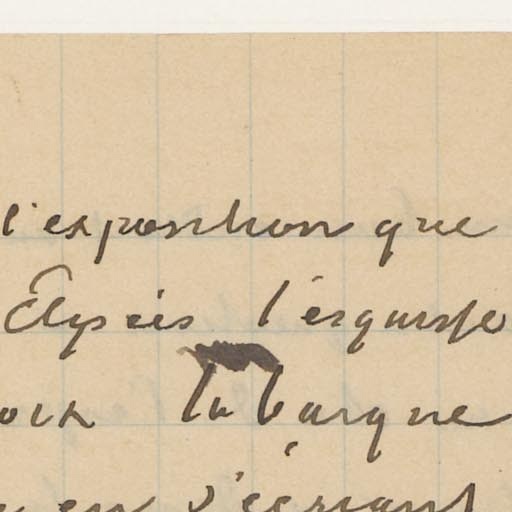 l'exposition que
Elysées l'esquisse
la barque
en s'écriant